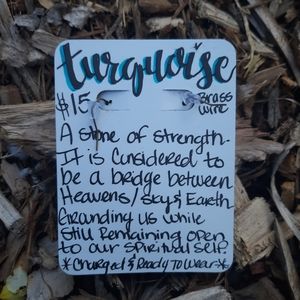 turquoise
$15 Brass wire
A stone of strength.
It is Considered to
be a bridge between
Heavens/sky & Earth
Grounding us while
still Remaining open
to our spiritual self
*Charged & Ready To Wear*